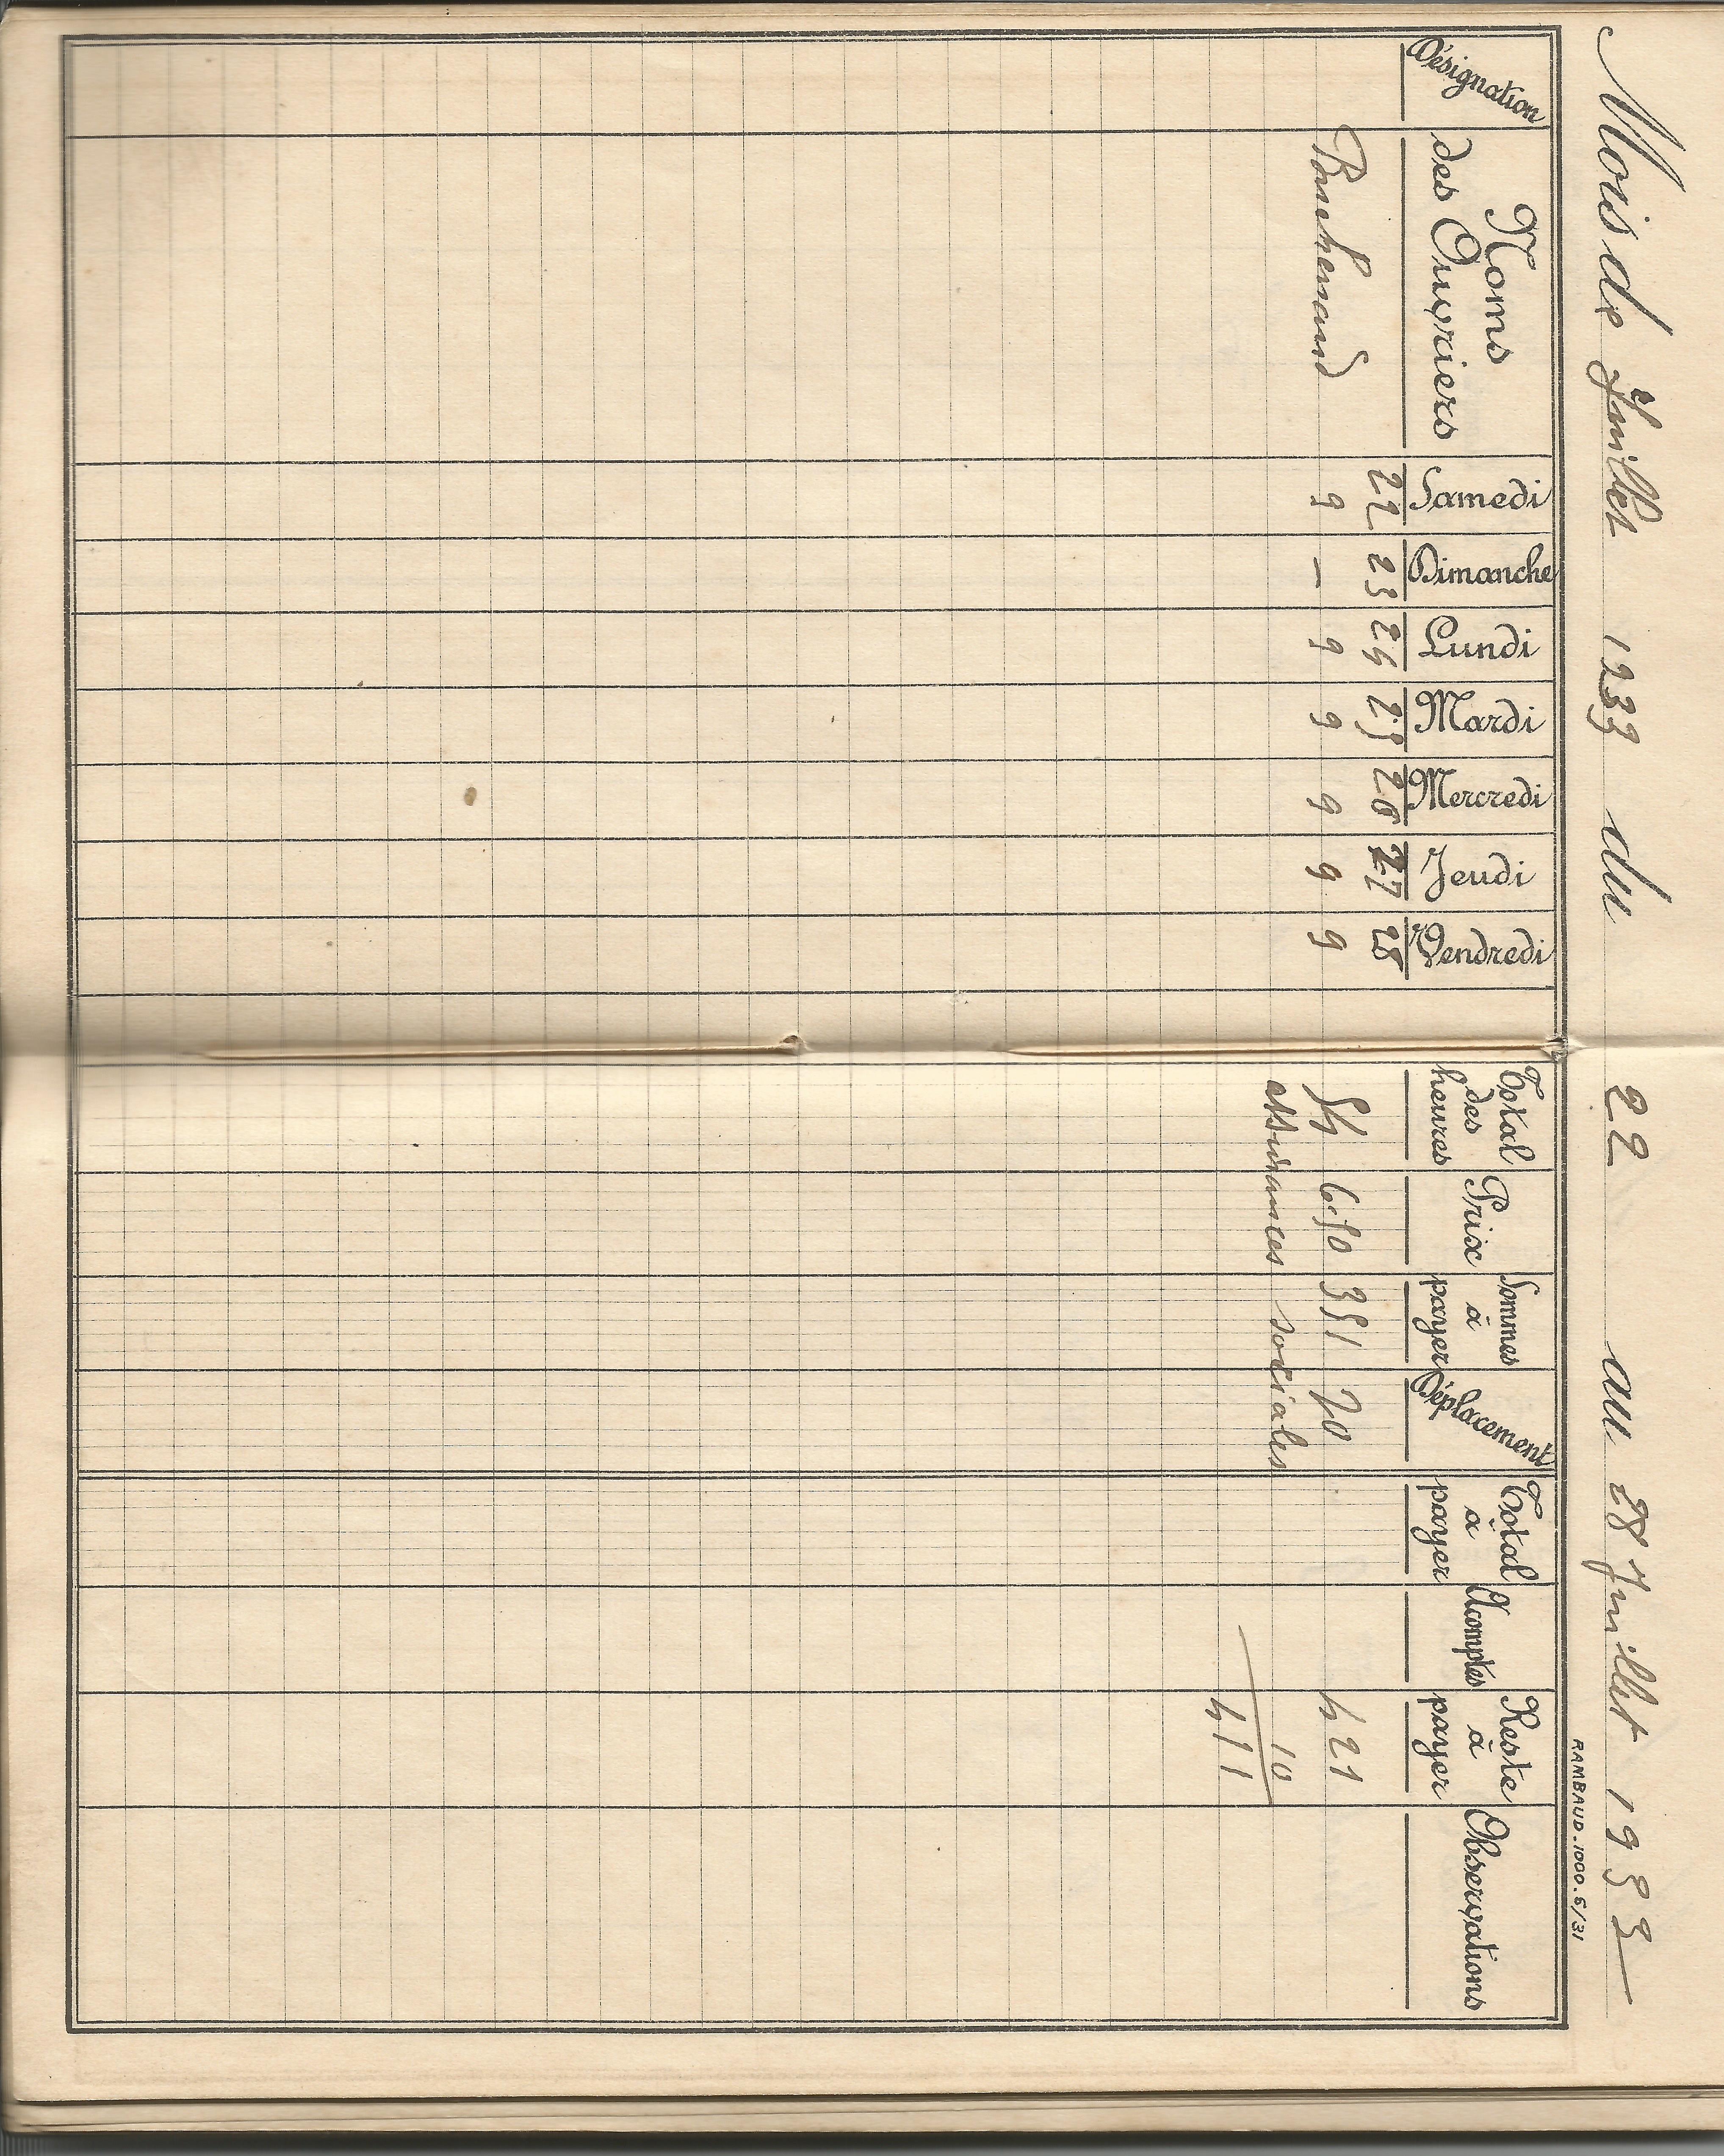 Mois de Juillet 1933 du 22 au 28 Juillet 1933
RAMBAUD.1000.5/31
Désignation Noms des Ouvriers Samedi Dimanche Lundi Mardi Mercredi Jeudi Vendredi Total des heures Prix Sommes à payer Déplacement Total à payer Acomptes Reste à payer Observations
22 23 24 25 26 27 28
9 — 9 9 9 9 9 54 6.50 351 70 421
assurances sociales 10
411